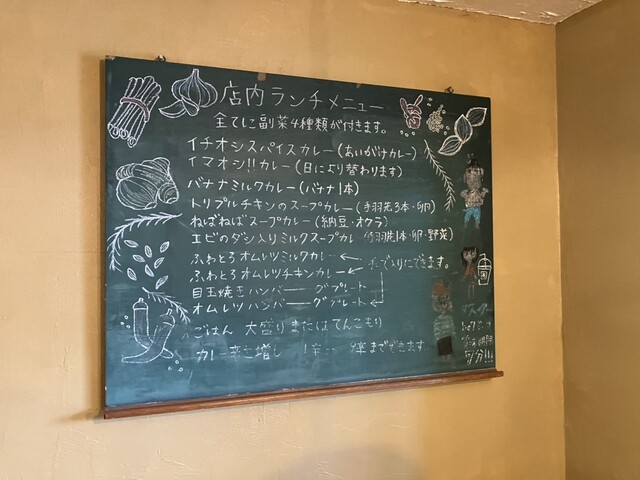 店内ランチメニュー
全てに副菜4種類が付きます。
イチオシスパイスカレー(あいがけカレー)
イマオシ!!カレー(日により替わります)
バナナミルクカレー(バナナ1本)
トリプルチキンのスープカレー(手羽先3本・卵)
ねばねばスープカレー(納豆・オクラ)
エビのダシ入りミルクスープカレー(手羽先1本・卵・野菜)
ふわとろオムレツミルクカレー
ふわとろオムレツチキンカレー
目玉焼きハンバーグプレート
オムレツハンバーグプレート
できます。
ごはん 大盛り またはてんこもり
カレー辛さ増し 1辛 まで できます